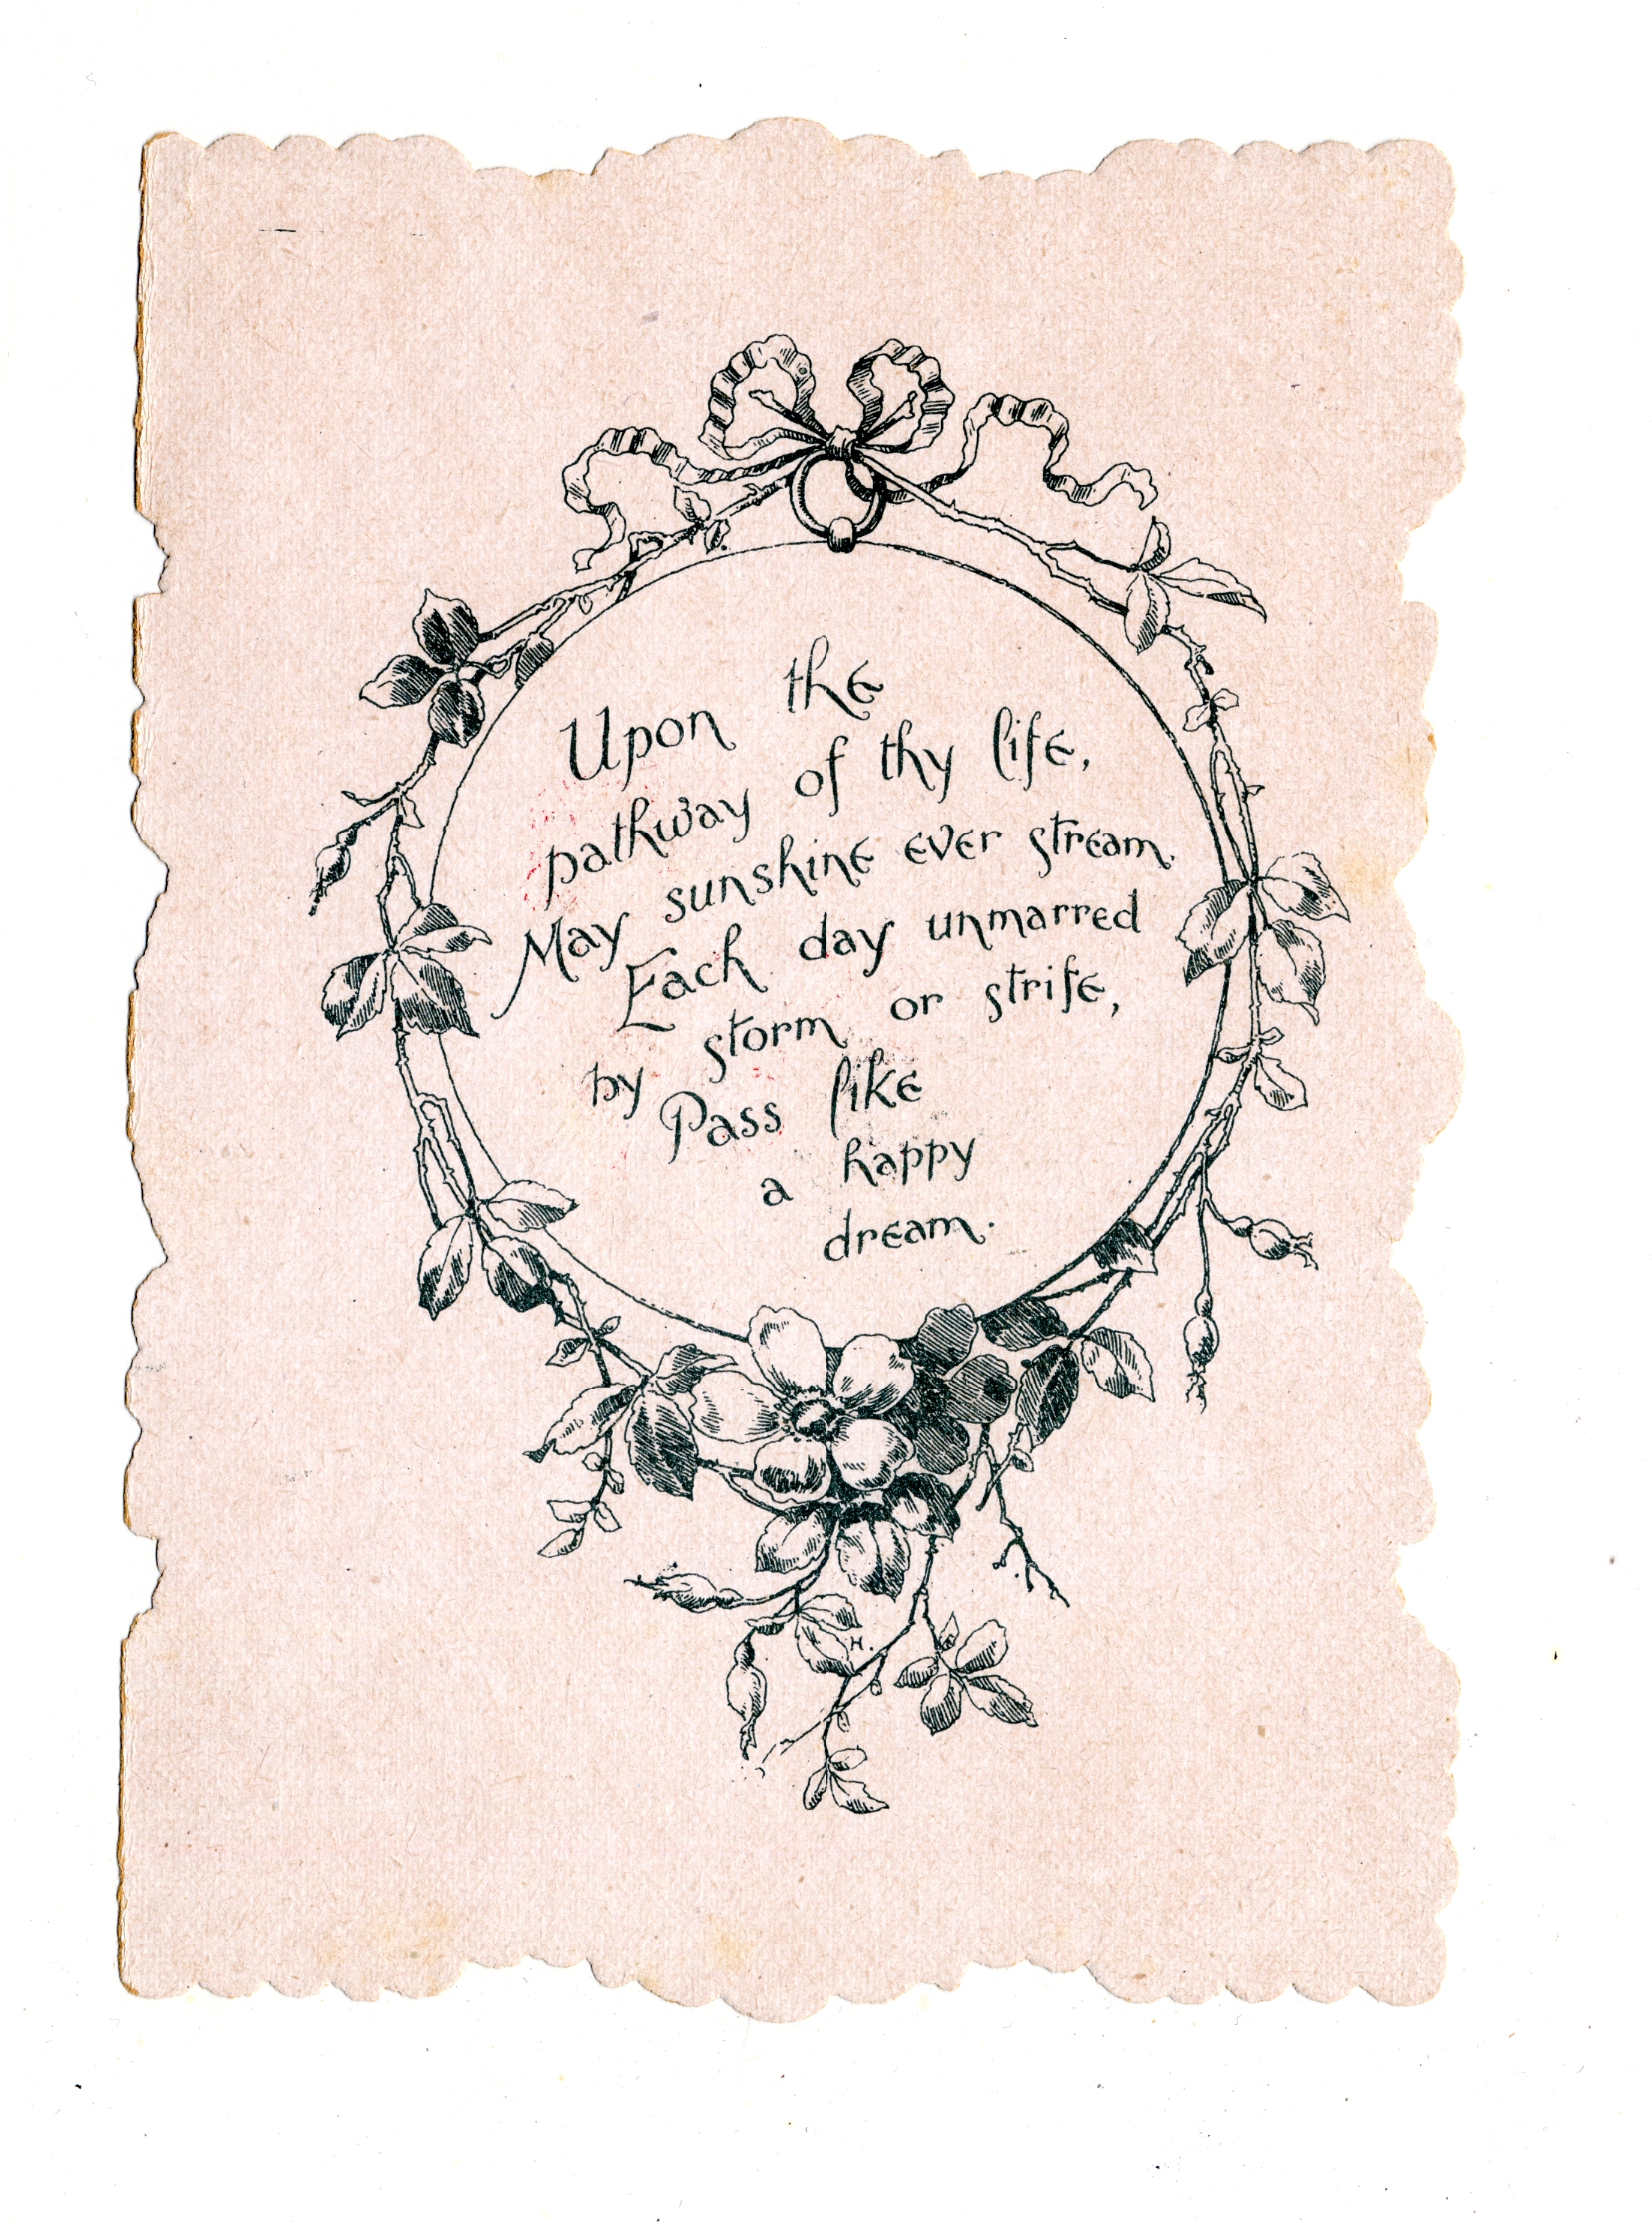 Upon the
pathway of thy life,
May sunshine ever stream.
Each day unmarred
by storm or strife,
Pass like
a happy
dream.
H.